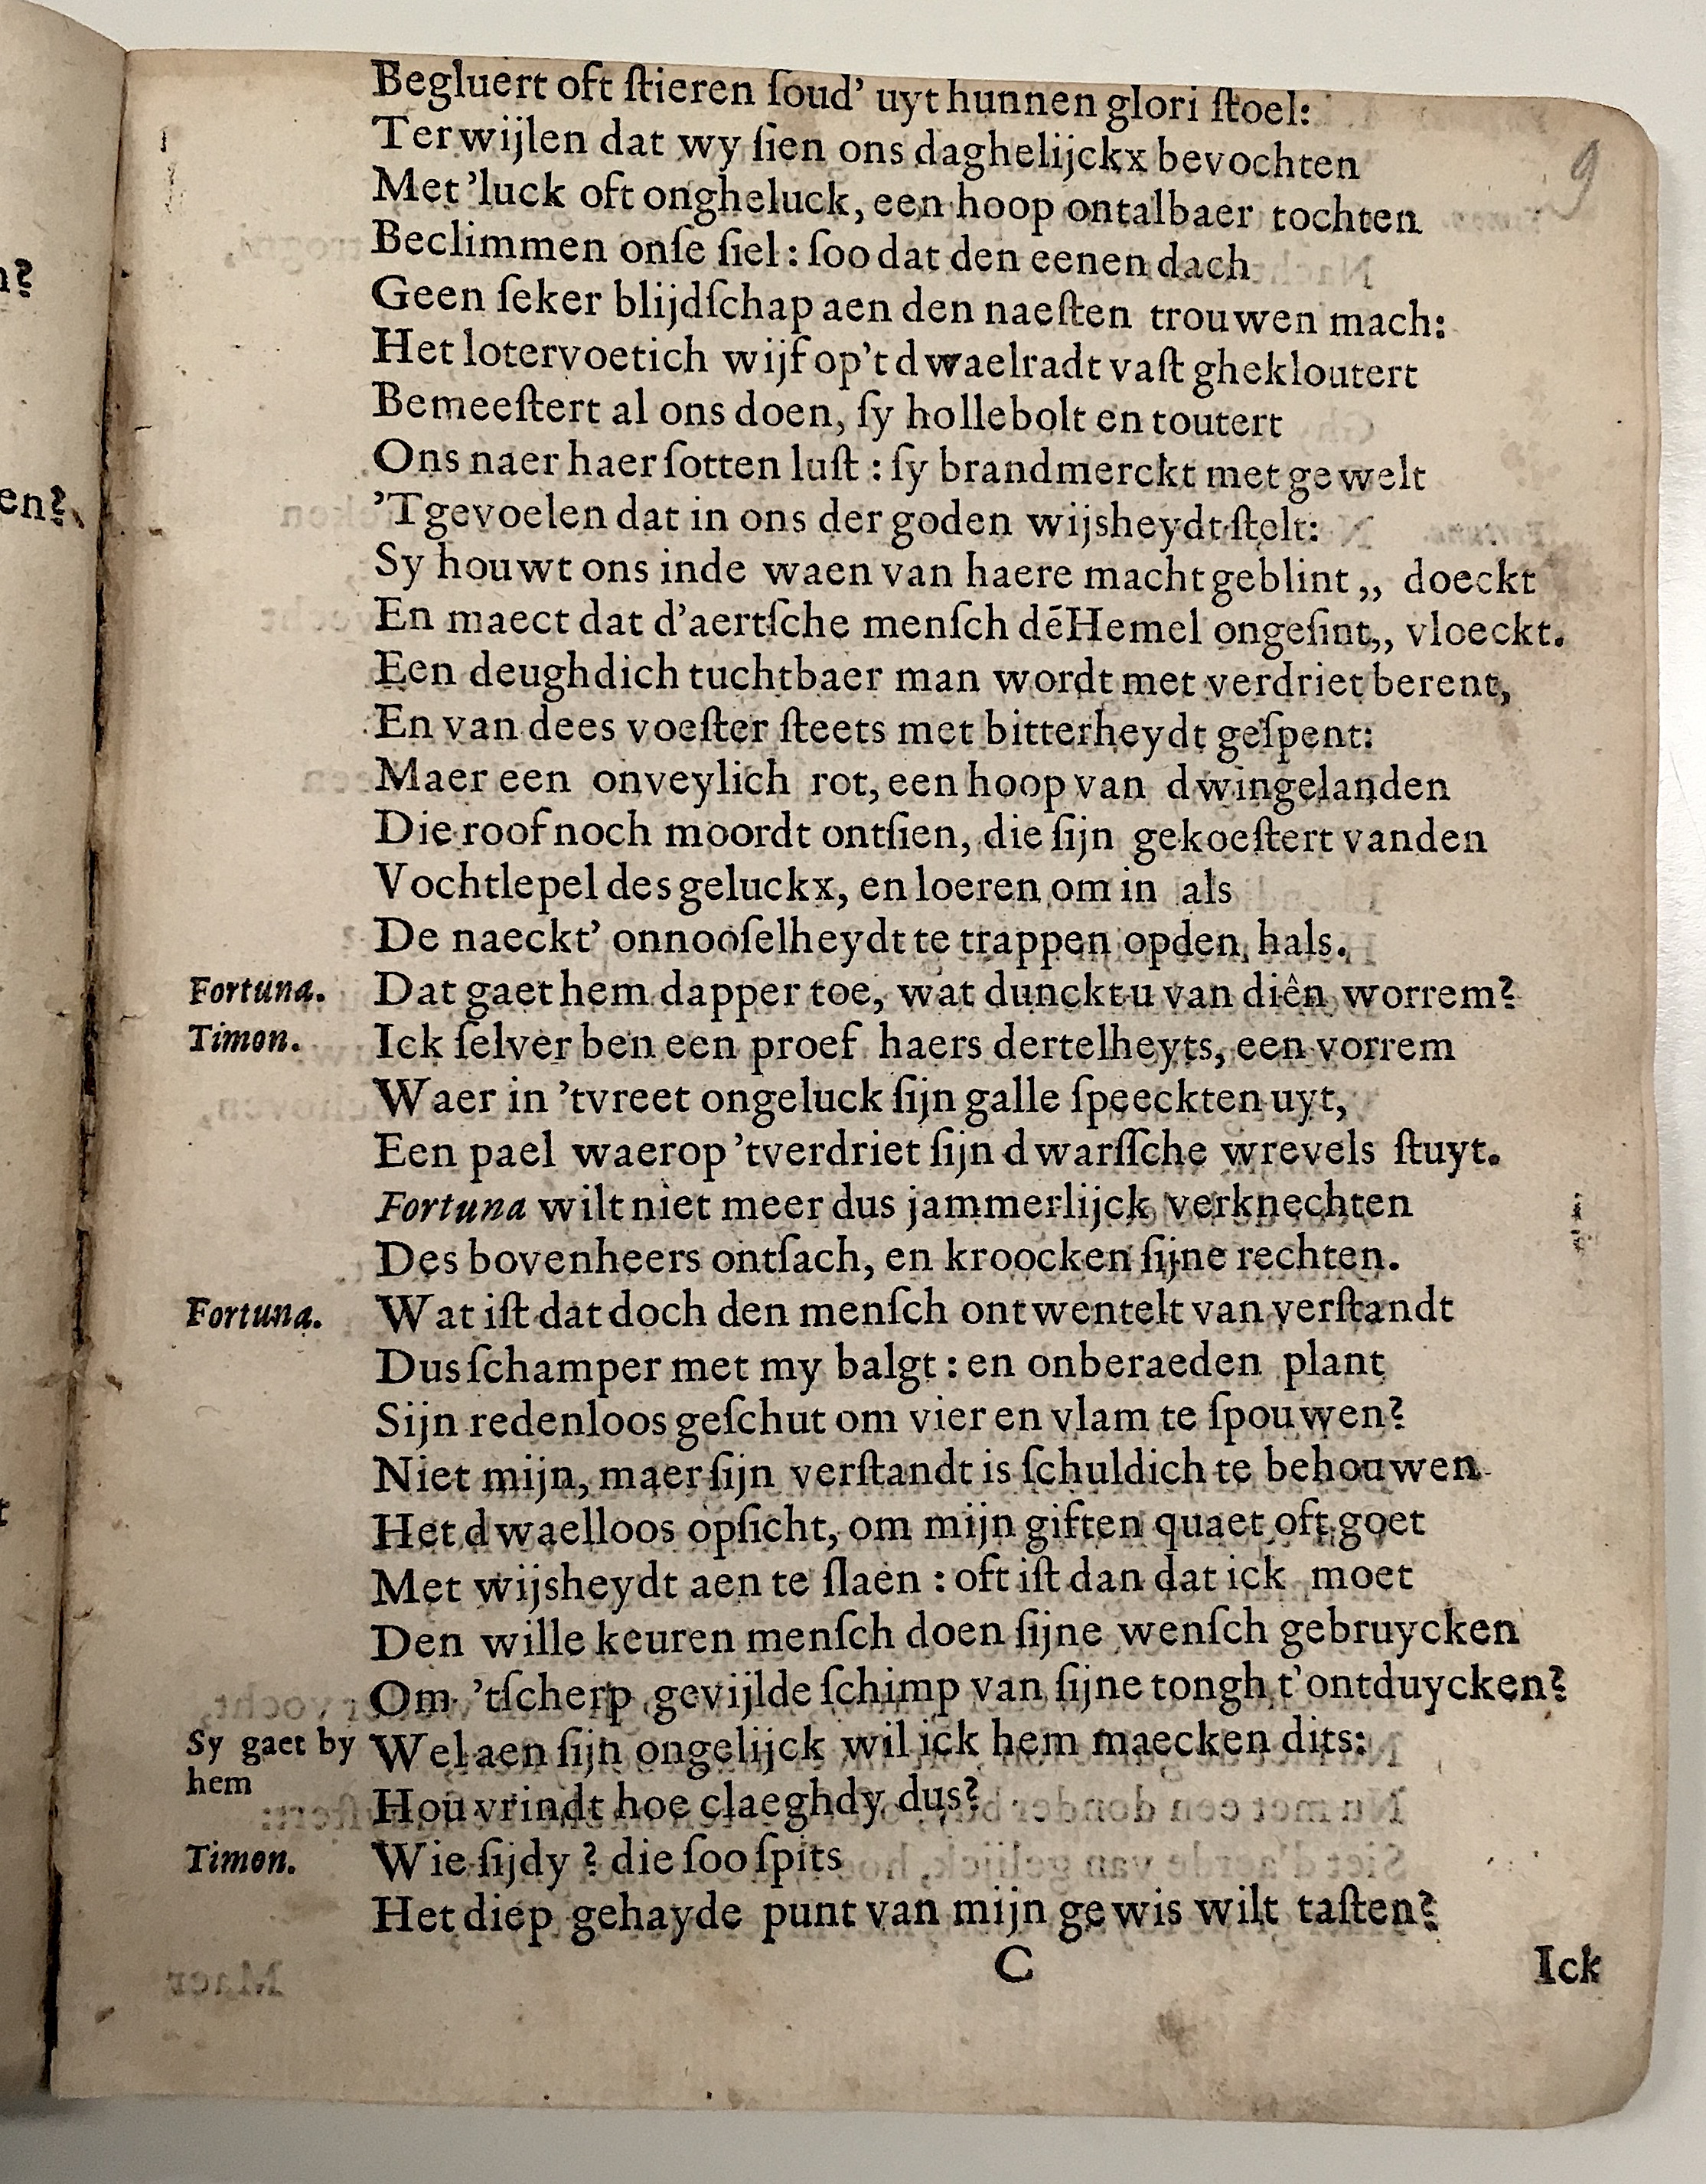 9
Begluert oft ſtieren ſoud' uyt hunnen glori ſtoel:
Terwijlen dat wy ſien ons daghelijckx bevochten
Met 'luck oft ongheluck, een hoop ontalbaer tochten
Beclimmen onſe ſiel: ſoo dat den eenen dach
Geen ſeker blijdſchap aen den naeſten trouwen mach:
Het lotervoetich wijf op't dwaelradt vaſt ghekloutert
Bemeeſtert al ons doen, ſy hollebolt en toutert
Ons naer haer ſotten luſt: ſy brandmerckt met gewelt
'Tgevoelen dat in ons der goden wijsheydt ſtelt:
Sy houwt ons inde waen van haere macht geblint,, doeckt
En maect dat d'aertſche menſch dē Hemel ongeſint,, vloeckt.
Een deughdich tuchtbaer man wordt met verdriet berent,
En van dees voeſter ſteets met bitterheydt geſpent:
Maer een onveylich rot, een hoop van dwingelanden
Die roof noch moordt ontſien, die ſijn gekoeſtert vanden
Vochtlepel des geluckx, en loeren om in als
De naeckt' onnooſelheydt te trappen opden hals.
Fortuna. Dat gaet hem dapper toe, wat dunckt u van diên worrem?
Timon. Ick ſelver ben een proef haers dertelheyts, een vorrem
Waer in 'tvreet ongeluck ſijn galle ſpeeckten uyt,
Een pael waerop 'tverdriet ſijn dwarſſche wrevels ſtuyt.
Fortuna wilt niet meer dus jammerlijck verknechten
Des bovenheers ontſach, en kroocken ſijne rechten.
Fortuna. Wat iſt dat doch den menſch ontwentelt van verſtandt
Dus ſchamper met my balgt: en onberaeden plant
Sijn redenloos geſchut om vier en vlam te ſpouwen?
Niet mijn, maer ſijn verſtandt is ſchuldich te behouwen
Het dwaelloos opſicht, om mijn giften quaet oft goet
Met wijsheydt aen te ſlaen: oft iſt dan dat ick moet
Den wille keuren menſch doen ſijne wenſch gebruycken
Om 'tſcherp gevijlde ſchimp van ſijne tongh t'ontduycken?
Sy gaet by hem Wel aen ſijn ongelijck wil ick hem maecken dits:
Hou vrindt hoe claeghdy dus?
Timon. Wie ſijdy? die ſoo ſpits
Het diep gehayde punt van mijn gewis wilt taſten?
C Ick